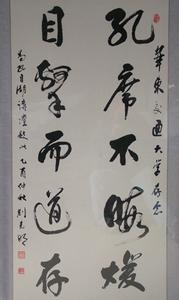 華東交通大學存念
孔席不暇煖
目擊而道存
乙酉仲秋